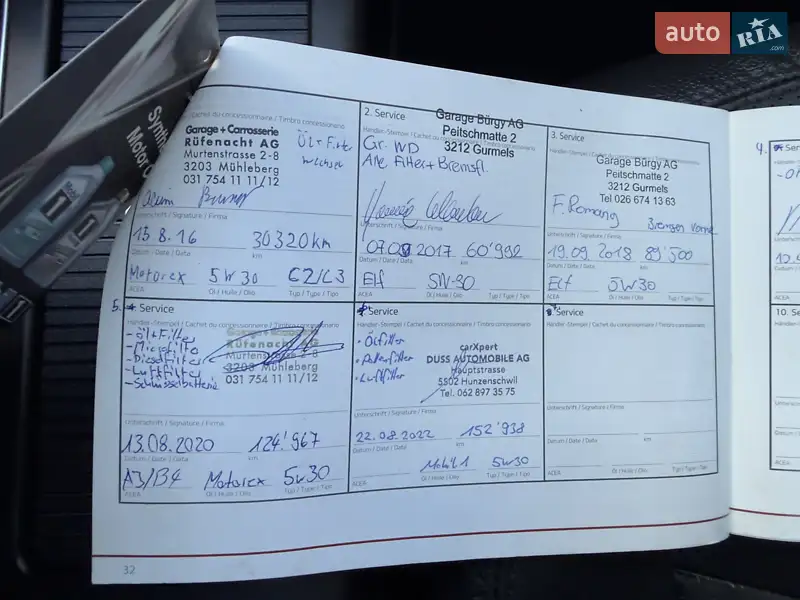 auto RIA .com
Synth
Motor O
Mobil 1
Cachet du concessionnaire / Timbro concessionario
Garage + Carrosserie
Rüfenacht AG
Murtenstrasse 2-8
3203 Mühleberg
031 754 11 11/12
Öl + Filter
Unterschrift / Signature / Firma
13.8.16 30320 km
Datum / Date / Data km
Motorex 5W30 C2/C3
ACEA Öl / Huile / Olio Typ / Type / Tipo
2. Service
Händler-Stempel / Cachet du concessionnaire / Timbro concessionario
Garage Bürgy AG
Peitschmatte 2
3212 Gurmels
Gr. WD
Alle Filter + Bremsfl.
Unterschrift / Signature / Firma
07.09 2017 60'992
Datum / Date / Data km
Elf 5W-30
ACEA Öl / Huile / Olio Typ / Type / Tipo
3. Service
Händler-Stempel / Cachet du concessionnaire / Timbro concessionario
Garage Bürgy AG
Peitschmatte 2
3212 Gurmels
Tel 026 674 13 63
F. Romang Bremsen vorne
Unterschrift / Signature / Firma
19.09.2018 89'500
Datum / Date / Data km
Elf 5W30
ACEA Öl / Huile / Olio Typ / Type / Tipo
4. Ser
5. Service
Händler-Stempel / Cachet du concessionnaire / Timbro concessionario
- Öl + Filter
- Dieselfilter
- Luftfilter
- Schlüsselbatterie
Garage + Carrosserie
Rüfenacht AG
Murtenstrasse 2-8
3203 Mühleberg
031 754 11 11/12
Unterschrift / Signature / Firma
13.08.2020 124'967
Datum / Date / Data km
A3/B4 Motorex 5W30
ACEA Öl / Huile / Olio Typ / Type / Tipo
Service
Händler-Stempel / Cachet du concessionnaire / Timbro concessionario
- Ölfilter
- Pollenfilter
- Luftfilter
carXpert
DUSS AUTOMOBILE AG
Hauptstrasse
5502 Hunzenschwil
Tel. 062 897 35 75
Unterschrift / Signature / Firma
22.08.2022 152'938
Datum / Date / Data km
Mobil 1 5W30
ACEA Öl / Huile / Olio Typ / Type / Tipo
Service
Händler-Stempel / Cachet du concessionnaire / Timbro concessionario
Unterschrift / Signature / Firma
Datum / Date / Data km
ACEA Öl / Huile / Olio Typ / Type / Tipo
10. Se
Händler
Untersch
Datum /
ACEA
32